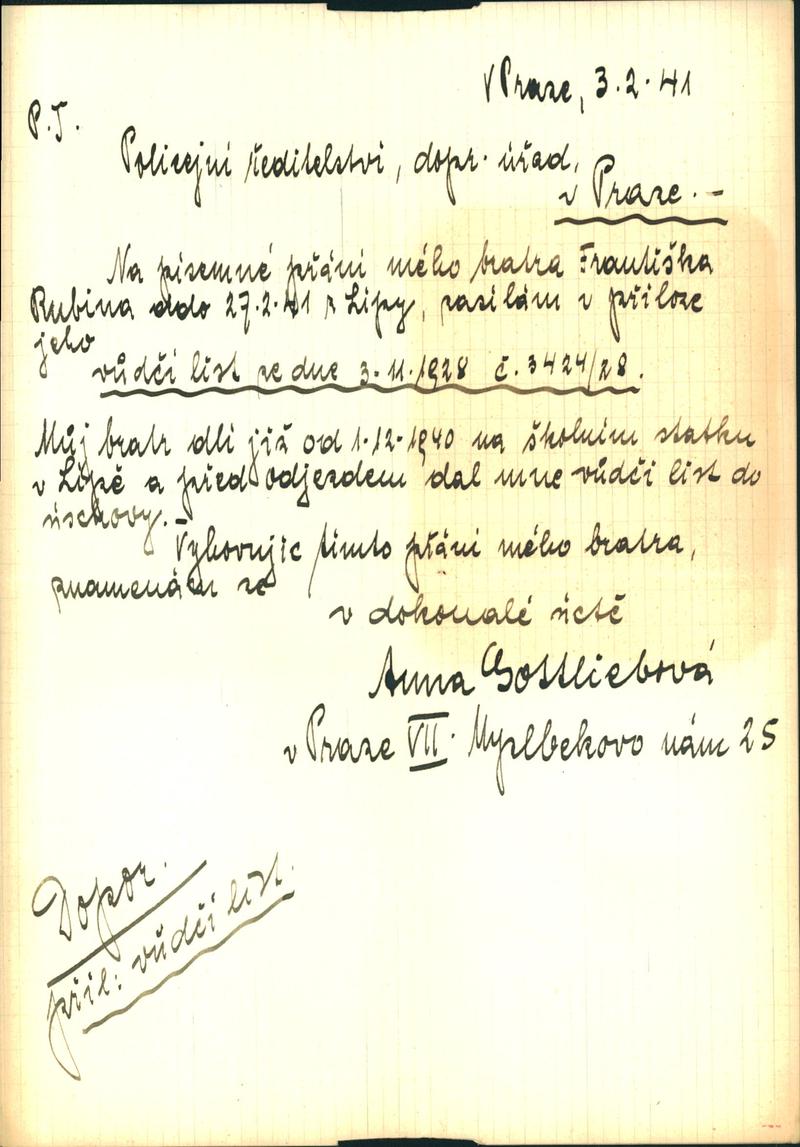 v Praze, 3.2.41
P.T.
Policejní ředitelství, dopr. úřad,
v Praze.-
Na písemné přání mého bratra Františka
Rubina ddo 27.2.41 z Lípy, zasílám v příloze
jeho
vůdčí list ze dne 3.11.1928 č. 3424/28.
Můj bratr dlí již od 1.12.1940 na školním statku
v Lípě a před odjezdem dal mne vůdčí list do
úschovy.-
Vyhovujíc tímto přání mého bratra,
znamenám se
v dokonalé úctě
Anna Gottliebová
v Praze VII. Myslbekovo nám 25
Dopor.
příl: vůdčí list.